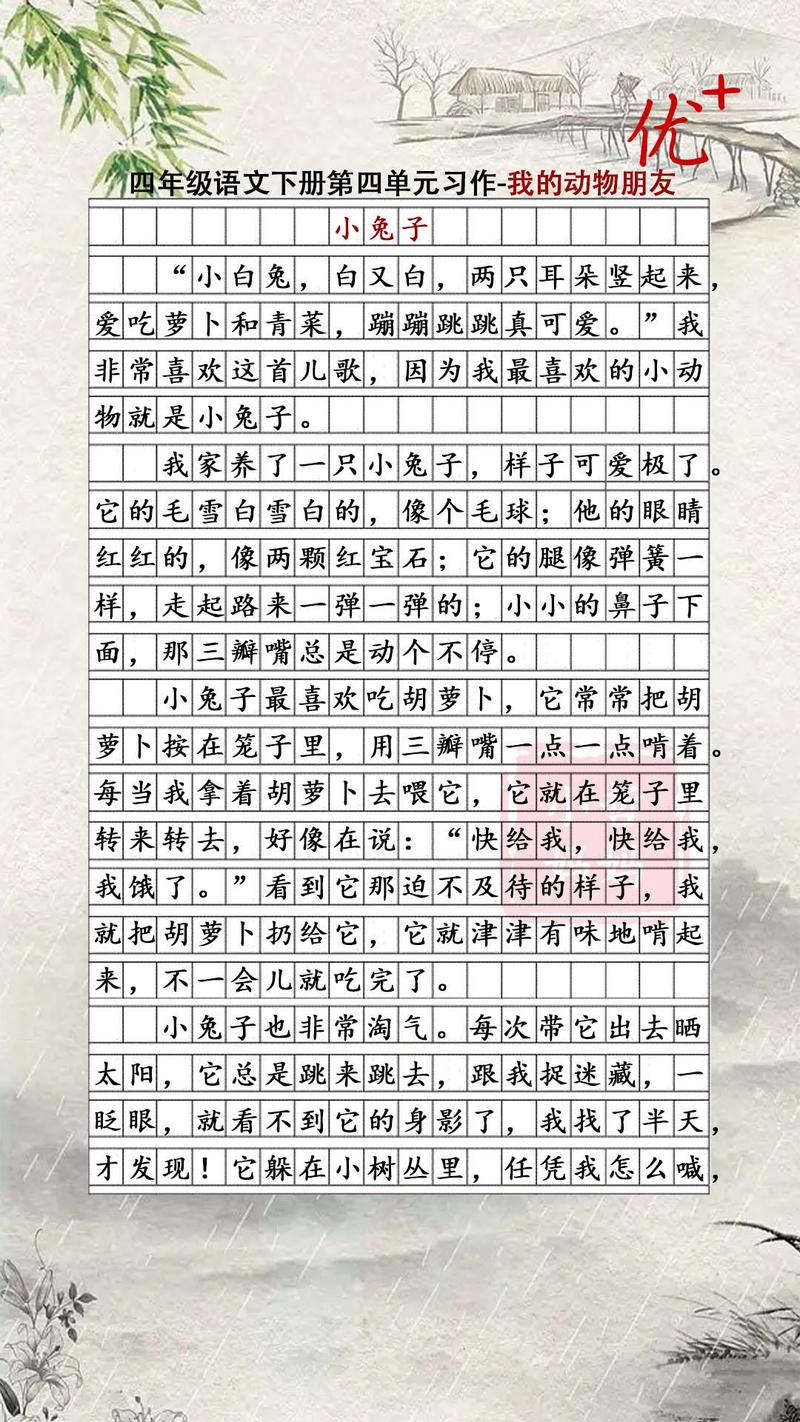 优+
四年级语文下册第四单元习作-我的动物朋友
小兔子
“小白兔，白又白，两只耳朵竖起来，
爱吃萝卜和青菜，蹦蹦跳跳真可爱。”我
非常喜欢这首儿歌，因为我最喜欢的小动
物就是小兔子。
我家养了一只小兔子，样子可爱极了。
它的毛雪白雪白的，像个毛球；他的眼睛
红红的，像两颗红宝石；它的腿像弹簧一
样，走起路来一弹一弹的；小小的鼻子下
面，那三瓣嘴总是动个不停。
小兔子最喜欢吃胡萝卜，它常常把胡
萝卜按在笼子里，用三瓣嘴一点一点啃着。
每当我拿着胡萝卜去喂它，它就在笼子里
转来转去，好像在说：“快给我，快给我，
我饿了。”看到它那迫不及待的样子，我
就把胡萝卜扔给它，它就津津有味地啃起
来，不一会儿就吃完了。
小兔子也非常淘气。每次带它出去晒
太阳，它总是跳来跳去，跟我捉迷藏，一
眨眼，就看不到它的身影了，我找了半天，
才发现！它躲在小树丛里，任凭我怎么喊，